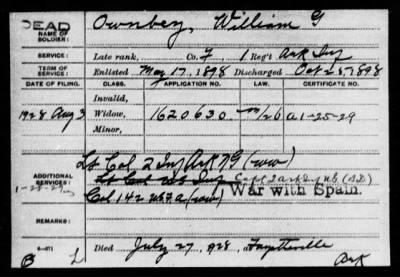 DEAD
NAME OF SOLDIER: Ownbey, William G
SERVICE: Late rank, Co. F, 1 Reg't Ark Inf
TERM OF SERVICE: Enlisted May 17, 1898 Discharged Oct 25, 1898
DATE OF FILING. CLASS. APPLICATION NO. LAW. CERTIFICATE NO.
Invalid,
1928 Aug 3 Widow, 1620630 A 1-25-29
Minor,
Lt Col 2 Inf Ark NG (WW)
ADDITIONAL SERVICES: Lt Col US Inf Capt 2 Ark Inf
1-28-29 War with Spain.
Col 142 (WW)
REMARKS:
Died July 27, 1928, at Fayetteville
Ark